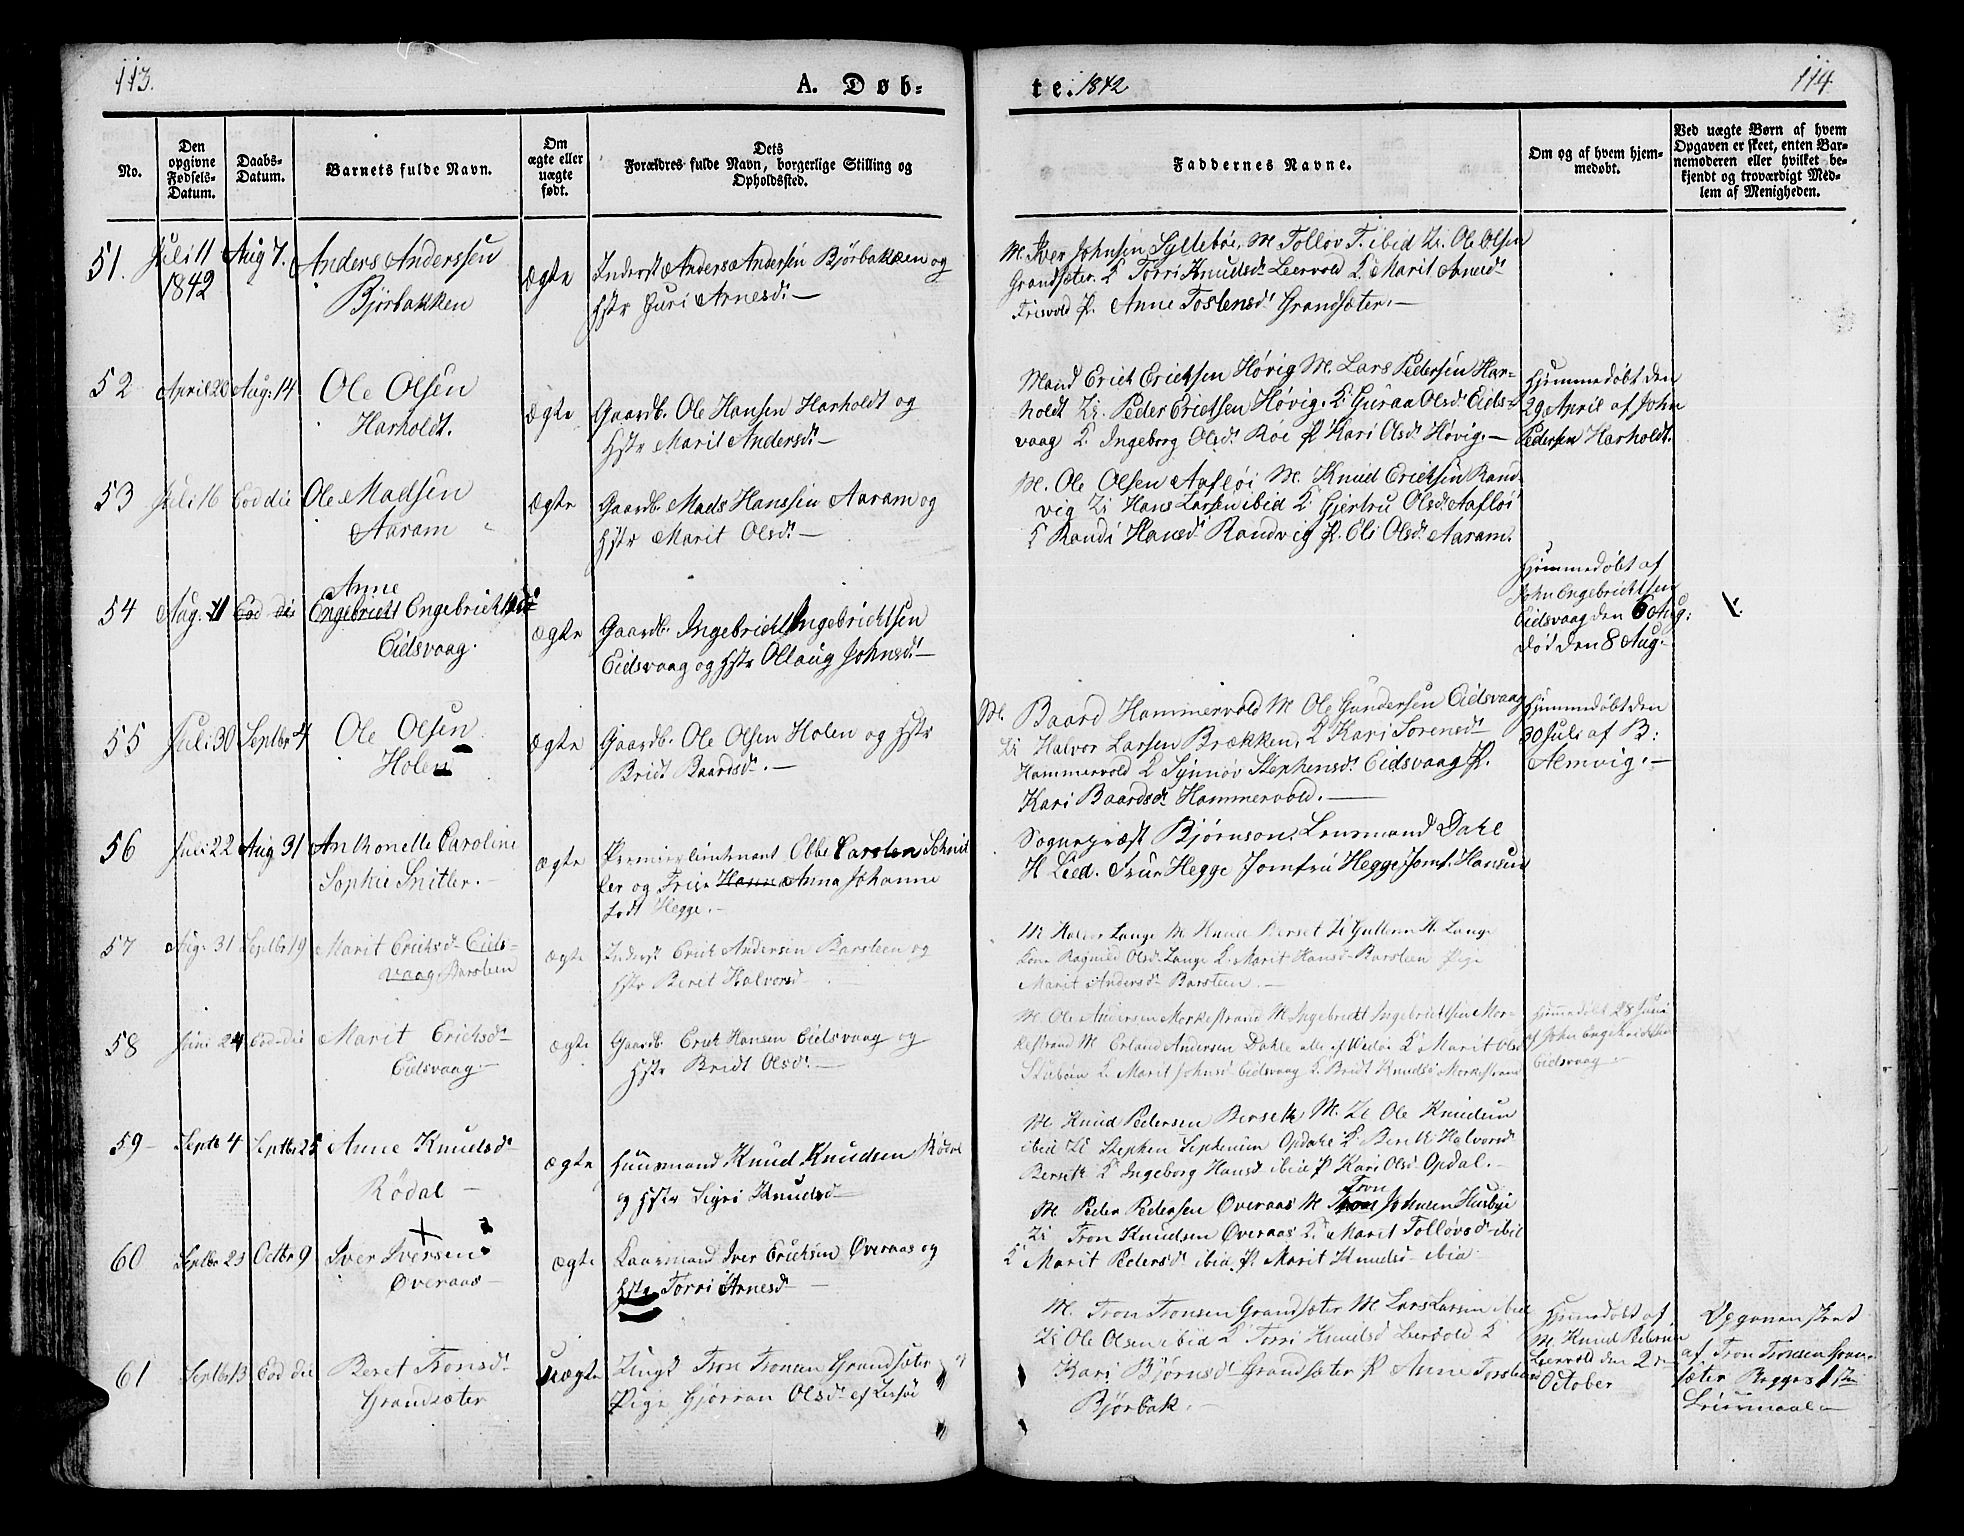 113.
A. Døb-
te. 1842
114
No.
Den opgivne Fødsels-Datum.
Daabs-Datum.
Barnets fulde Navn.
Om ægte eller uægte født.
Dets
Forældres fulde Navn, borgerlige Stilling og Opholdssted.
Faddernes Navne.
Om og af hvem hjem-
medøbt.
Ved uægte Børn af hvem
Opgaven er skeet, enten Bar-
nemoderen eller hvilket be-
kjendt og troværdigt Med-
lem af Menigheden.
51. Juli 11 1842 Aug 7. Anders Anderssen
Bjørbakken
ægte
Inderst Anders Andersen Bjørbakken og
Hstr Guri Arnesd. —
M. Iver Johnsen Syltebøe, M. Tollov T. ibid Zi. Ole Olsen
Grandsæter. K Torri Knudsd. Leervold K. Marit Arnesd.
Frisvold P. Anne Tostensd. Grandsæter. —
52 April 28 Aug: 14 Ole Olsen
Harholdt.
ægte
Gaardb. Ole Hansen Harholdt og
Hstr Marit Andersd. —
Mand Erich Erichsen Høvig M. Lars Pedersen Har-
holdt Zi. Peder Erichsen Høvig. K. Guraa Olsd. Eids-
vaag K. Ingeborg Olsd. Røe P. Kari Olsd. Høvig. —
Hjemmedøbt den
29 April af John
Pedersen Harholdt.
53 Juli 16 Eod die Ole Madsen
Aaram
ægte
Gaardb. Mads Hanssen Aaram og
Hstr Marit Olsd. —
M. Ole Olsen Aafløi M. Knud Erichsen Rand-
vig Zi Hans Larsen ibid K. Gjertru Olsd. Aafløi
K Randi Hansd. Randvig P. Eli Olsd. Aaram.
54 Aug. 11 Eod die Anne
Engebricht Engebrichtsd.
Eidsvaag.
ægte
Gaardb. Ingebricht Ingebrichtsen
Eidsvaag og Hstr Ollaug Johnsd. —
Hjemmedøbt af
John Engebrichtsen
Eidsvaag den 6 Aug:
død den 8 Aug.
55 Juli 30 Septbr 4 Ole Olsen
Holen
ægte
Gaardb. Ole Olsen Holen og Hstr
Bridt Baardsd. —
M. Baard Hammervold M Ole Gundersen Eidsvaag
Zi Halvor Larsen Brækken, K Kari Sorensd.
Hammervold K Synnøv Stephensd. Eidsvaag P.
Kari Baardsd. Hammervold. —
Hjemmedøbt den
30 Juli af B:
Almvig. —
56 Juli 22 Aug 31 Anthonette Caroline
Sophie Snitler. —
ægte
Premierlieutnant Obbe Carsten Schnit
ler og Frue Hanna Anna Johanne
født Hegge. —
Sognepræst Bjørnson, Lensmand Dahl
H Lied. Frue Hegge Jomfru Hegge, Jomf. Hansen
57 Aug. 31 Septbr 19 Marit Erichsd. Eids-
vaag Barsteen
ægte
Inderst Erich Andersen Barsteen og
Hstr Beret Halvorsd
M Halvor Lange M Knud Berset Zi Guttorm H. Lange
Kone Ragnild Olsd. Lange K. Marit Hansd. Barsteen Pige
Marit Andersd. Barsteen. —
58 Juni 24 Eod die Marit Erichsd.
Eidsvaag. —
ægte
Gaardb Erich Hansen Eidsvaag og
Hstr Bridt Olsd. —
M. Ole Andersen Morkestrand M. Ingebricht Ingebrichtsen Mor-
kestrand M. Erland Andersen Dahle alle af Vedøe K. Marit Olsd.
K. Marit Johnsd. Eidsvaag K. Bridt Knudsd. Morkestrand
Hjemmedøbt 28 Juni
af John Engebrichtsen
Eidsvaag. —
59 — Septbr 4 Septbr 25 Anne Knudsd.
Rödal —
ægte
Huusmand Knud Knudsen Rödal
og Hstr Sigri Knudsd. —
M Knud Pedersen Berseth M. Zi Ole Knudsen
ibid Zi Stephen Stephensen Opdahl K Bereth Halvorsd
Berseth K Ingeborg Hansd ibid P Kari Olsd. Opdal. —
60 Septbr 23 Octbr 9 Iver Iversen
Overaas —
ægte
Laarmand Iver Erichsen Overaas og
Hstr Torri Arnesd —
M. Peder Pedersen Overaas M Tron Johnsen Husbye
Zi Tron Knudsen Overaas K. Marit Tollovsd. ibid
K Marit Pedersd. ibid. P. Marit Knudsd. ibid
61 Septbr 13 Eod die Beret Tronsd.
Grandsæter
Uægte
Ungk. Tron Tronsen Grandsæter og
Pige Gjørran Olsd. af Lesjø
M. Tron Tronsen Grandsæter M. Lars Larsen ibid
Zi Ole Olsen ibid K Torri Knudsd Leervold K
Kari Bjørnsd. Grandsæter P Anne Torstensd.
Bjørbak. —
Hjemmedøbt af
M. Knud Pedersen
Leervold den 2den
October
Opgaven skeet
af Tron Tronsen Grand-
sæter Begges 1ste
Leiermaal —